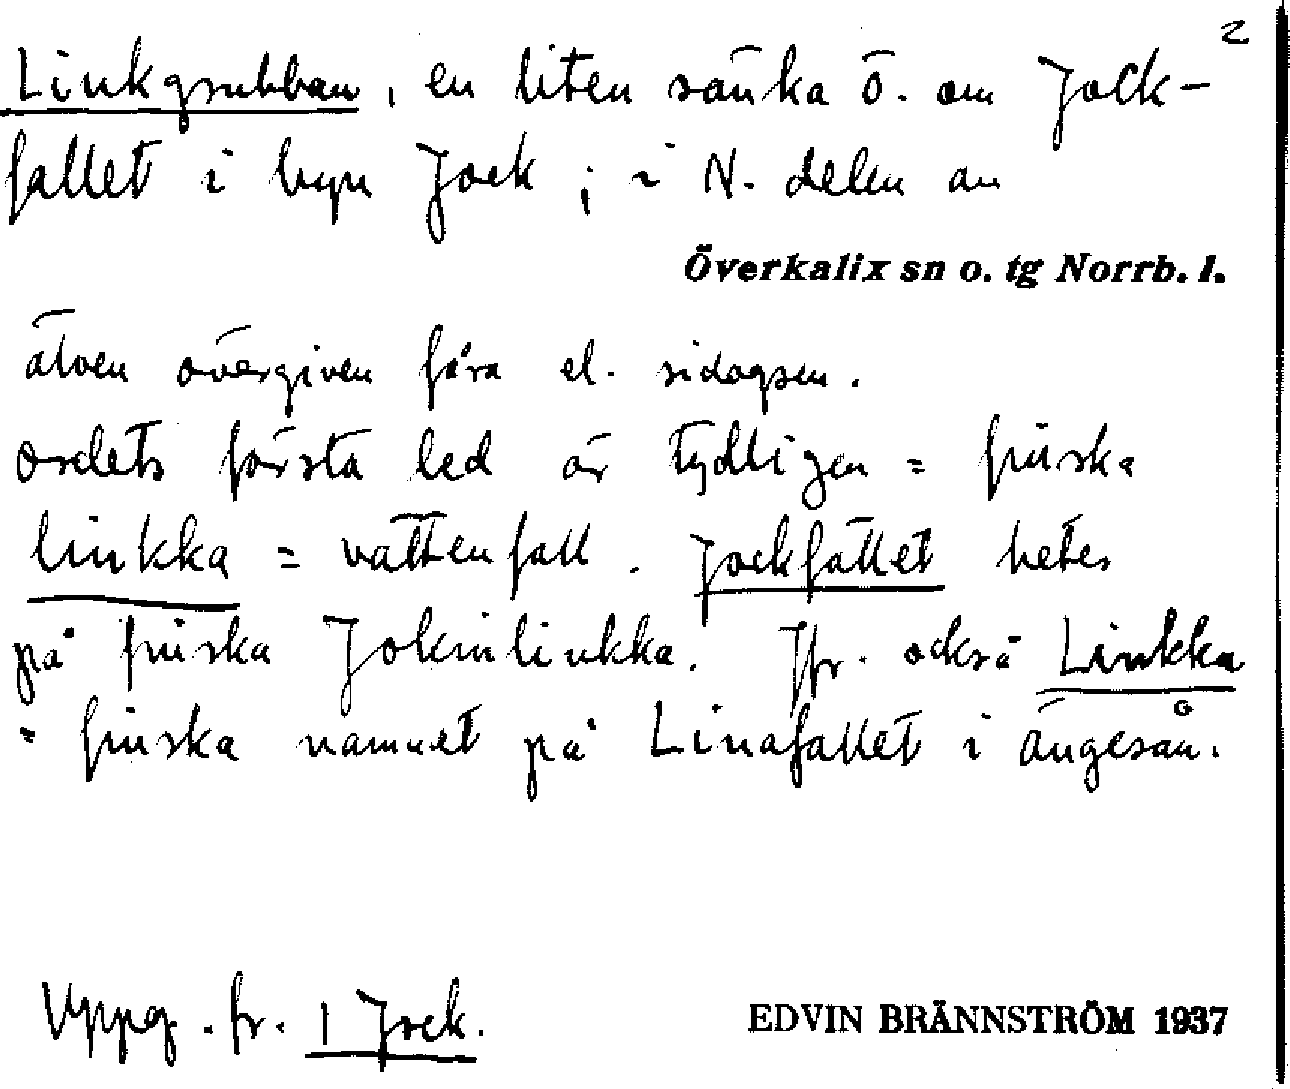 2
Linkgrubban, en liten sänka ö. om Jock-
fallet i byn Jock; i N. delen av
Överkalix sn o. tg Norrb. l.
älven övergiven fåra el. sidogren.
Ordets första led är tydligen = finska
linkka = vattenfall. Jockfallet heter
på finska Jokinlinkka. Jfr. också Linkka
= finska namnet på Linafallet i Ängesån.
Uppg. fr. 1 Jock.
EDVIN BRÄNNSTRÖM 1937